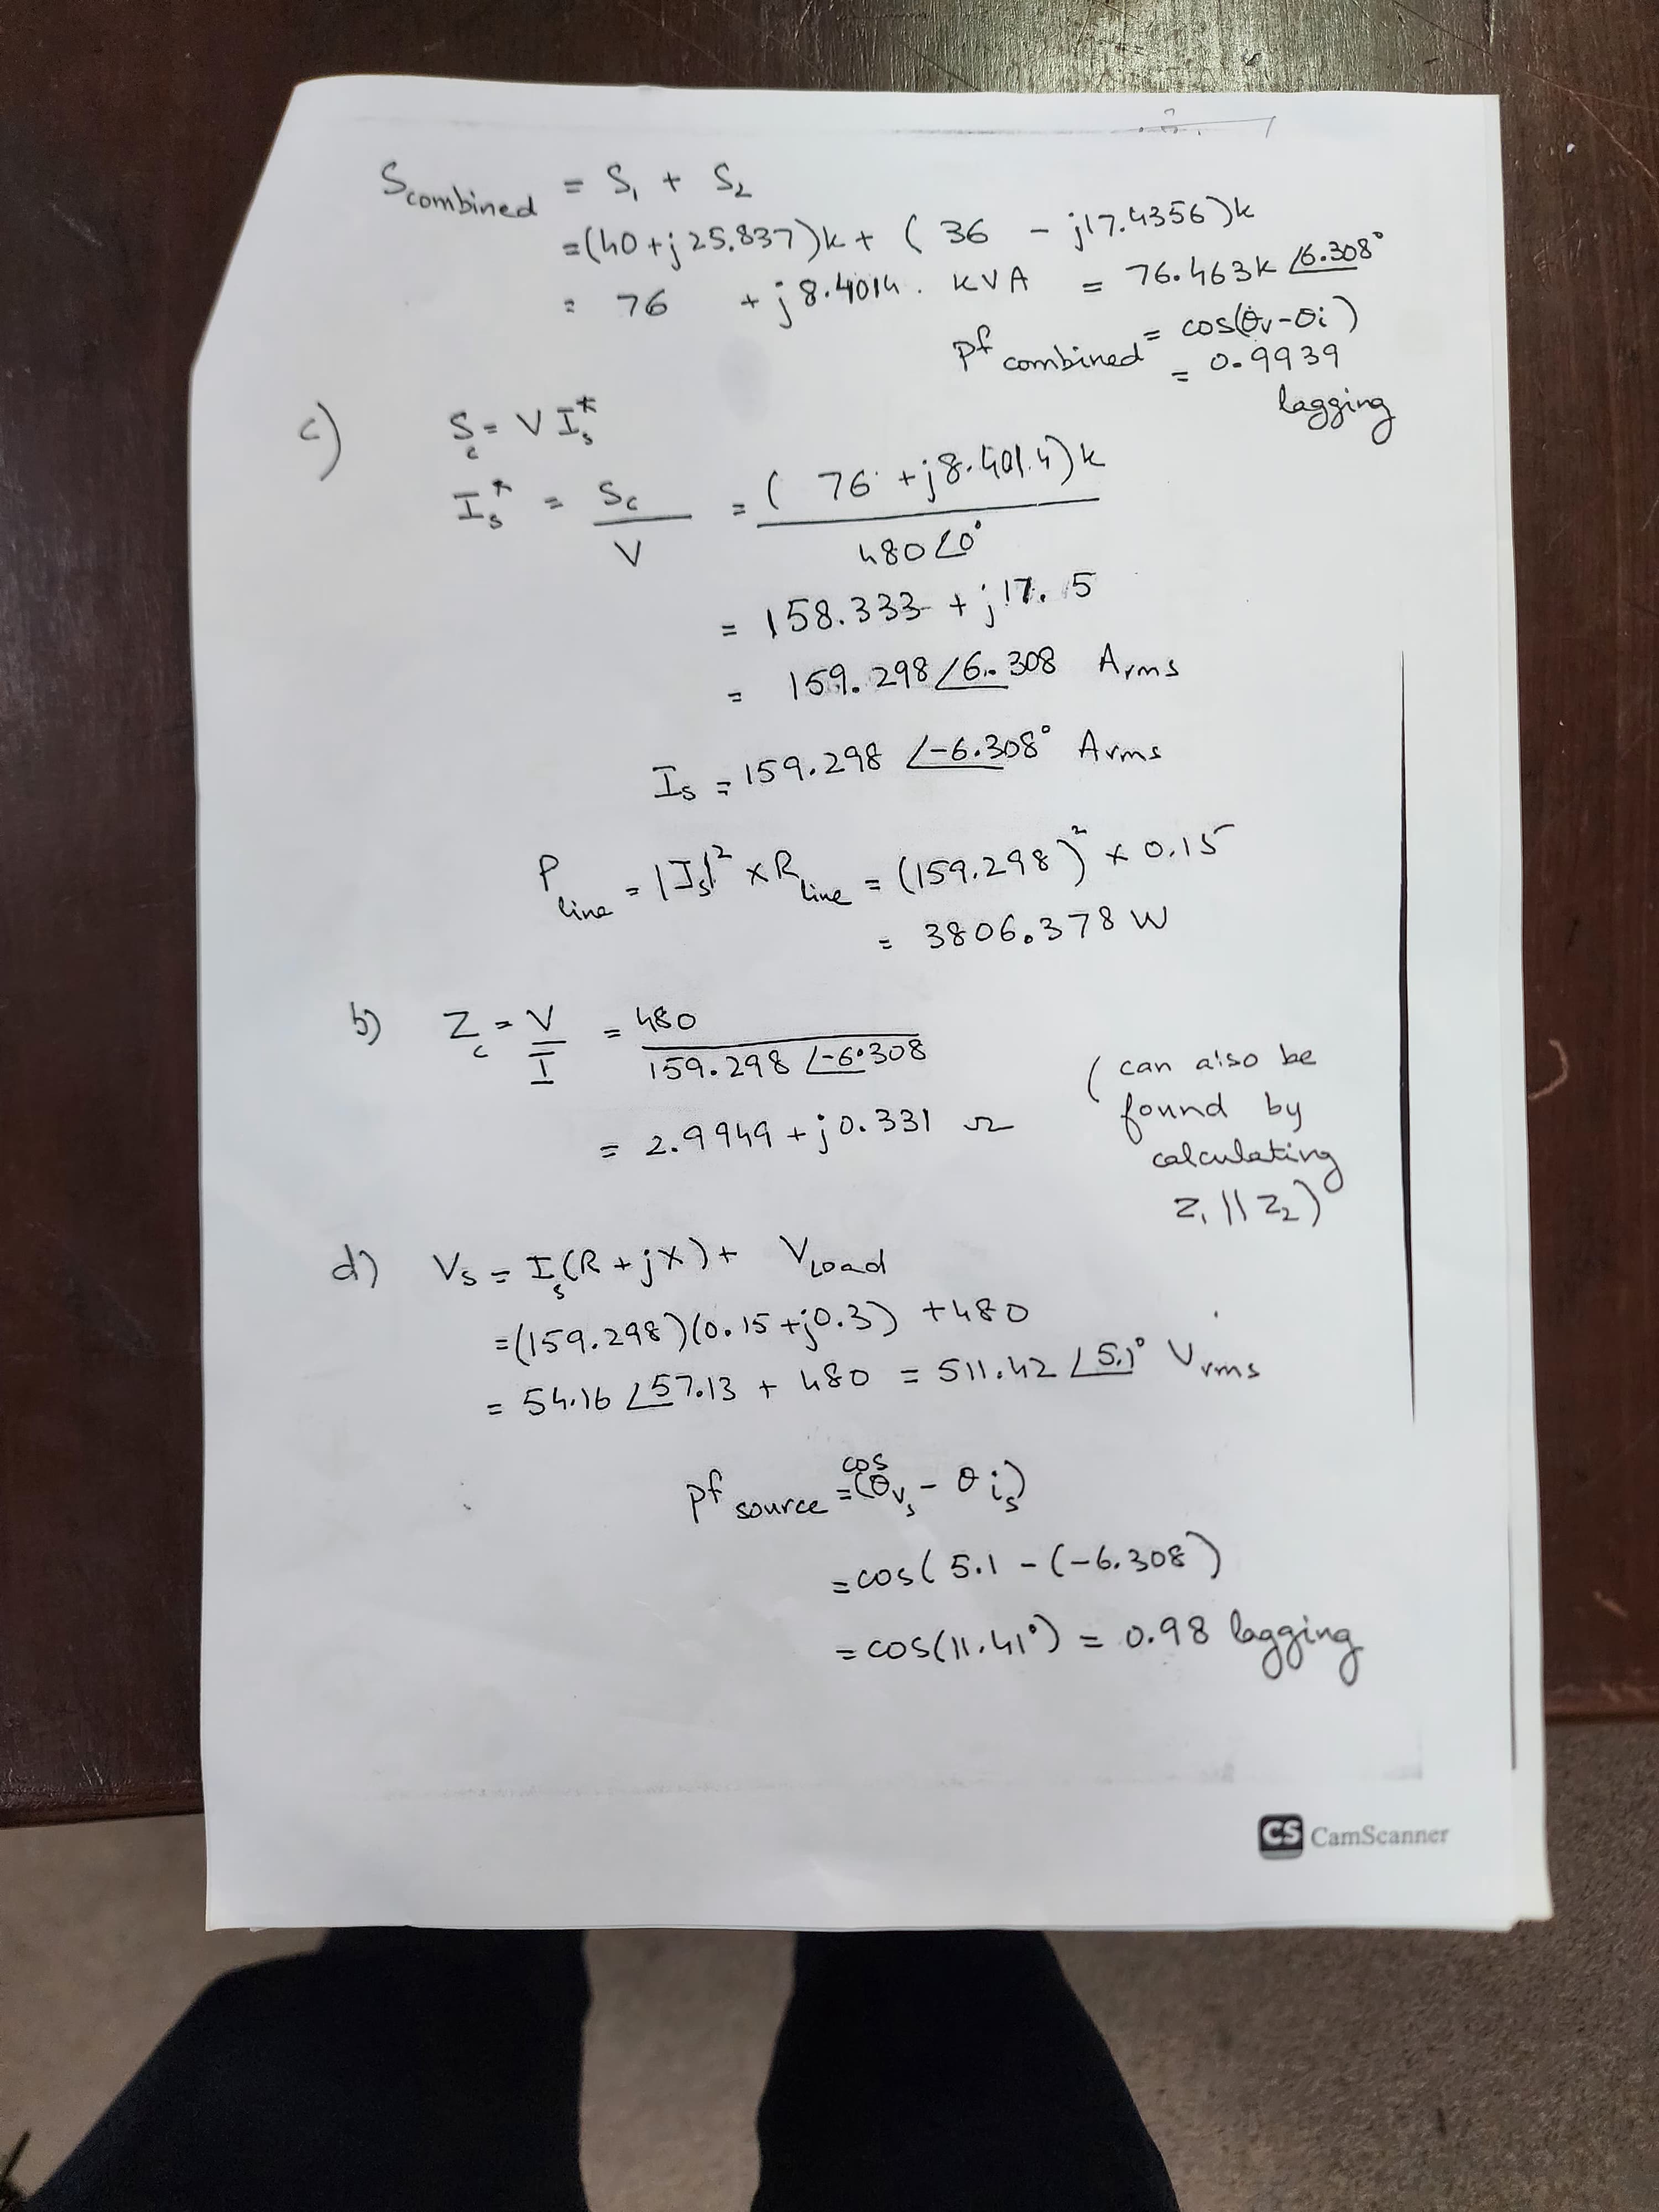 S combined = S₁ + S₂
=(40+j25.837)k + (36 - j17.4356)k
= 76 + j8.4014. kVA = 76.463k ∠6.308°
pf combined = cos(θv-θi)
= 0.9939
lagging
c) Sc = V Is*
Is* = Sc/V = (76 + j8.401.4)k / 480∠0°
= 158.333 + j17.5
= 159.298 ∠6.308 Arms
Is = 159.298 ∠-6.308° Arms
P line = |Is|² × R line = (159.298)² × 0.15
= 3806.378 W
b) Zc = V/I = 480 / 159.298 ∠-6.308
= 2.9949 + j0.331 Ω
(can also be
found by
calculating
Z₁ || Z₂)
d) Vs = Is(R + jX) + VLoad
=(159.298)(0.15+j0.3) + 480
= 54.16 ∠57.13 + 480 = 511.42 ∠5.1° Vrms
pf source = cos(θvs - θis)
= cos(5.1 - (-6.308)
= cos(11.41°) = 0.98 lagging
CS CamScanner